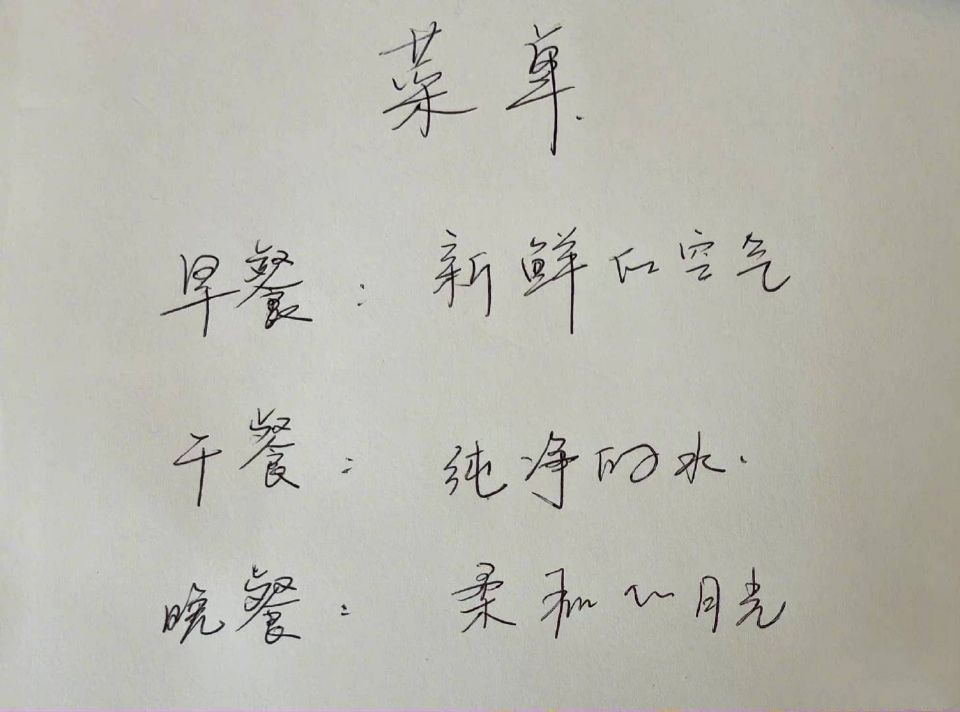 菜单.
早餐：新鲜的空气
干餐：纯净的水.
晚餐：柔和的月光